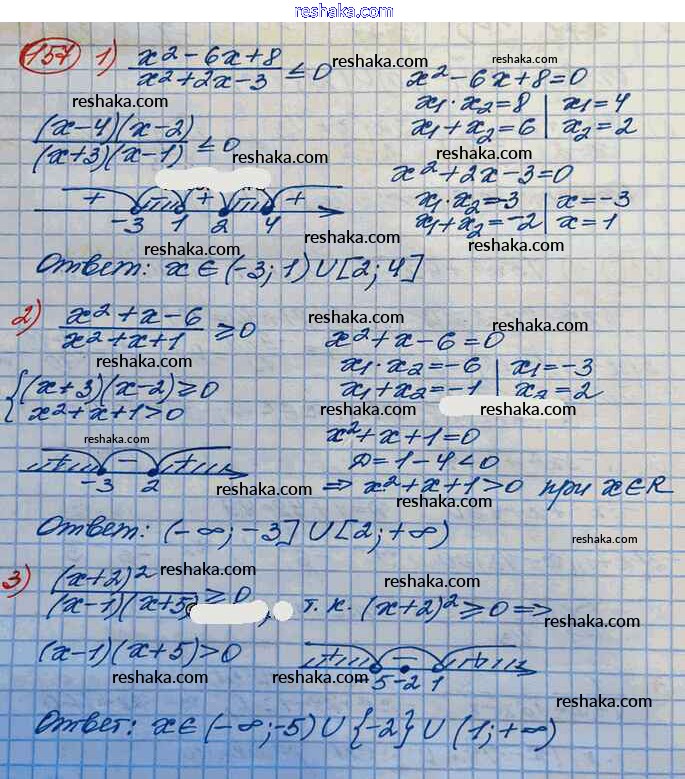 reshaka.com
157 1) x²-6x+8 / x²+2x-3 ≤ 0
x²-6x+8=0
reshaka.com
reshaka.com
reshaka.com
x₁·x₂=8 | x₁=4
x₁+x₂=6 | x₂=2
(x-4)(x-2) / (x+3)(x-1) ≤ 0
reshaka.com
reshaka.com
x²+2x-3=0
x₁·x₂=-3 | x=-3
x₁+x₂=-2 | x=1
+ + +
-3 1 2 4
reshaka.com
reshaka.com
Ответ: x∈(-3;1)∪[2;4]
reshaka.com
2) x²+x-6 / x²+x+1 ≥ 0
x²+x-6=0
reshaka.com
x₁·x₂=-6 | x₁=-3
x₁+x₂=-1 | x₂=2
{(x+3)(x-2)≥0
x²+x+1>0
reshaka.com
reshaka.com
reshaka.com
x²+x+1=0
D=1-4<0
+ - +
-3 2
reshaka.com
⇒ x²+x+1>0 при x∈R
reshaka.com
Ответ: (-∞;-3]∪[2;+∞)
reshaka.com
reshaka.com
3) (x+2)² / (x-1)(x+5) ≥ 0, т.к. (x+2)²≥0 ⇒
reshaka.com
reshaka.com
(x-1)(x+5)>0
+ - +
-5 -2 1
reshaka.com
reshaka.com
reshaka.com
Ответ: x∈(-∞;-5)∪{-2}∪(1;+∞)
reshaka.com